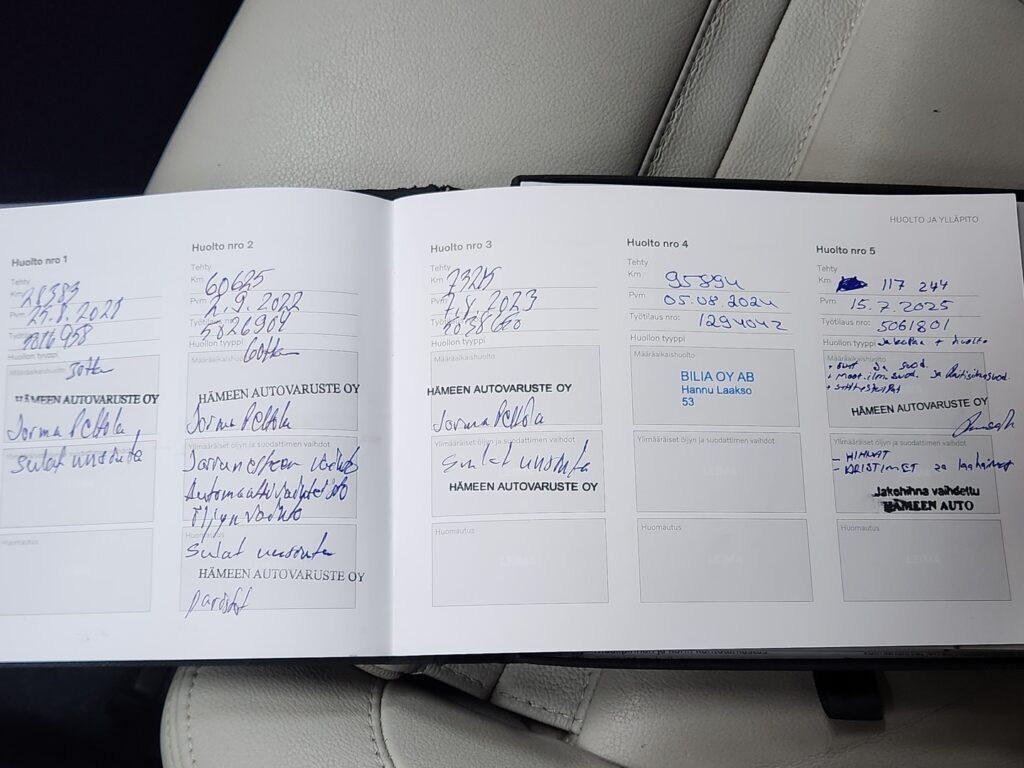 HUOLTO JA YLLÄPITO
Huolto nro 1
Tehty
Km 28383
Pvm 25.8.2021
Huollon tyyppi
Määräaikaishuolto
30tkm
HÄMEEN AUTOVARUSTE OY
Jorma Peltola
sulat uusinta
Huomautus
Huolto nro 2
Tehty
Km 60625
Pvm 2.9.2022
Työtilaus nro: 5026904
Huollon tyyppi
60tkm
Määräaikaishuolto
HÄMEEN AUTOVARUSTE OY
Jorma Peltola
Ylimääräiset öljyn ja suodattimen vaihdot
Jarrunesteen vaihto
Automaattivaihteisto
Öljyn vaihto
Huomautus
sulat uusinta
HÄMEEN AUTOVARUSTE OY
paristot
Huolto nro 3
Tehty
Km
Pvm
Työtilaus nro:
Huollon tyyppi
Määräaikaishuolto
HÄMEEN AUTOVARUSTE OY
Jorma Peltola
Ylimääräiset öljyn ja suodattimen vaihdot
sulat uusinta
HÄMEEN AUTOVARUSTE OY
Huomautus
LEIMA
Huolto nro 4
Tehty
Km 95894
Pvm 05.08.2024
Työtilaus nro: 1294042
Huollon tyyppi
Määräaikaishuolto
BILIA OY AB
Hannu Laakso
53
Ylimääräiset öljyn ja suodattimen vaihdot
LEIMA
Huomautus
LEIMA
Huolto nro 5
Tehty
Km 117 244
Pvm 15.7.2025
Työtilaus nro: 5061801
Huollon tyyppi Jakopää + huolto
Määräaikaishuolto
+ moot.ilm.suod. ja Raitisilmasuod.
+ sytytystulpat
HÄMEEN AUTOVARUSTE OY
Ylimääräiset öljyn ja suodattimen vaihdot
- HIHNAT
- KIRISTIMET ja
Jakohihna vaihdettu
HÄMEEN AUTO
Huomautus
LEIMA